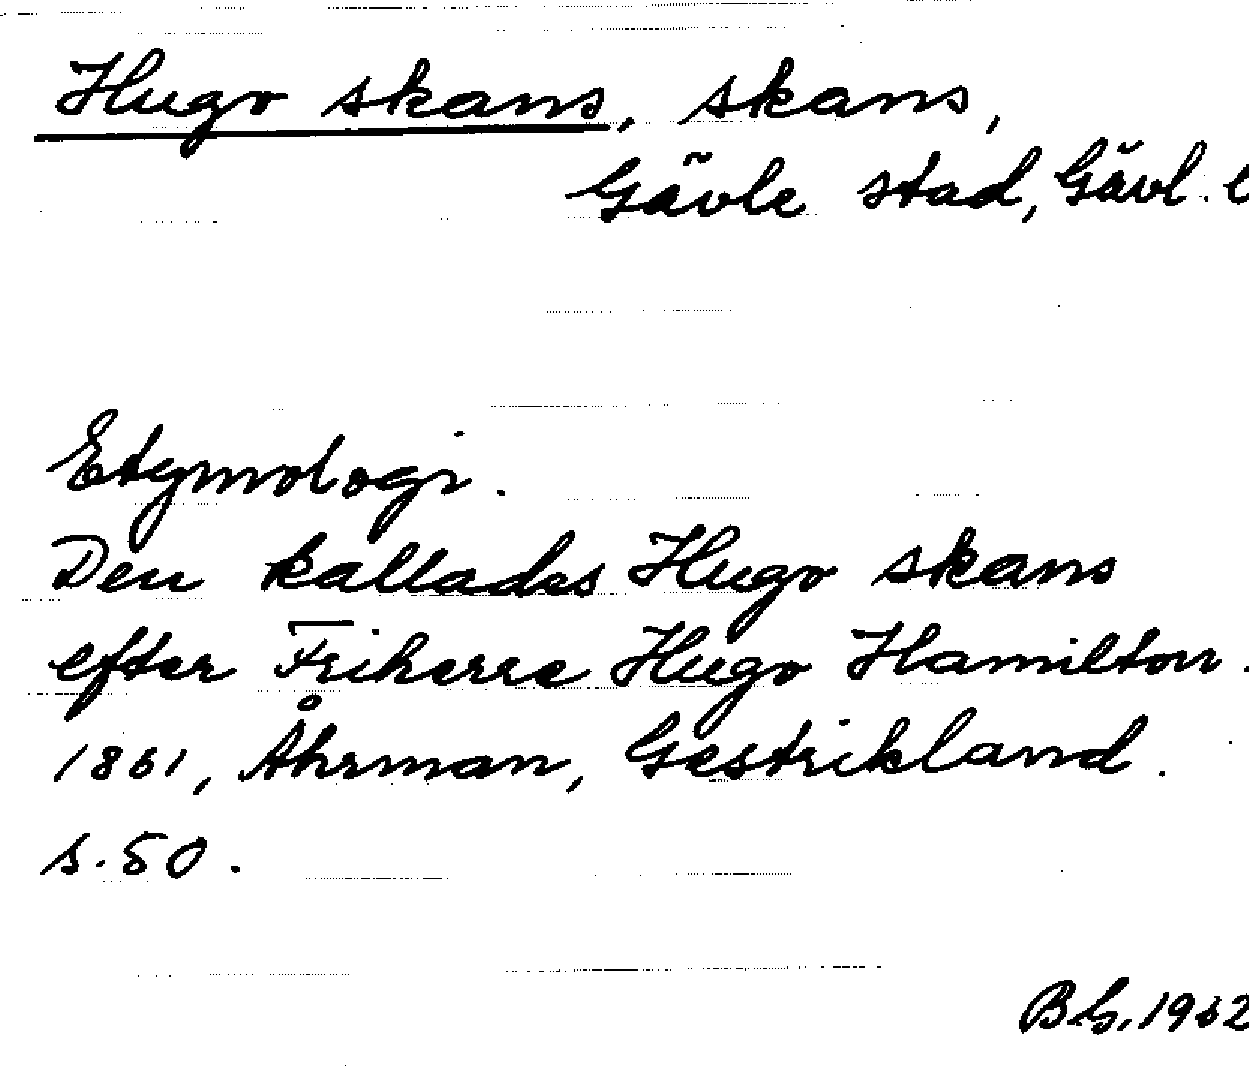 Hugo skans, skans,
Gävle stad, Gävl. l
Etymologi.
Den kallades Hugo skans
efter Friherre Hugo Hamilton.
1861, Åhrman, Gestrikland.
s. 50.
BG. 1962